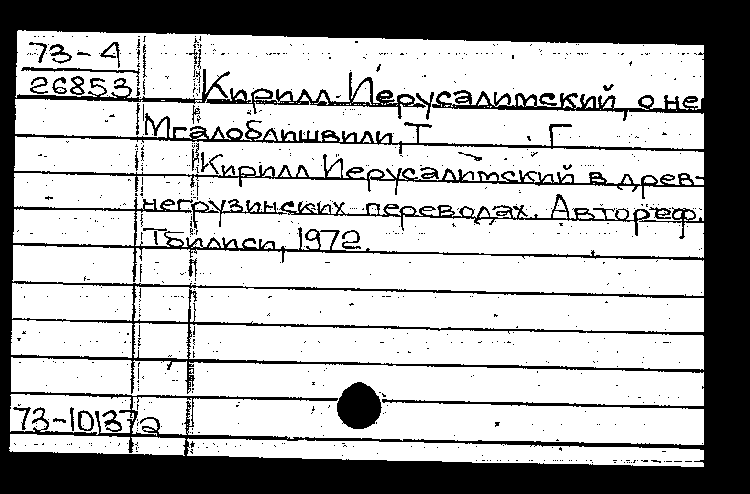 73-4
26853
Кирилл Иерусалимский, о нем
Мгалоблишвили, Т Г
Кирилл Иерусалимский в древ-
негрузинских переводах. Автореф.
Тбилиси, 1972.
73-101372